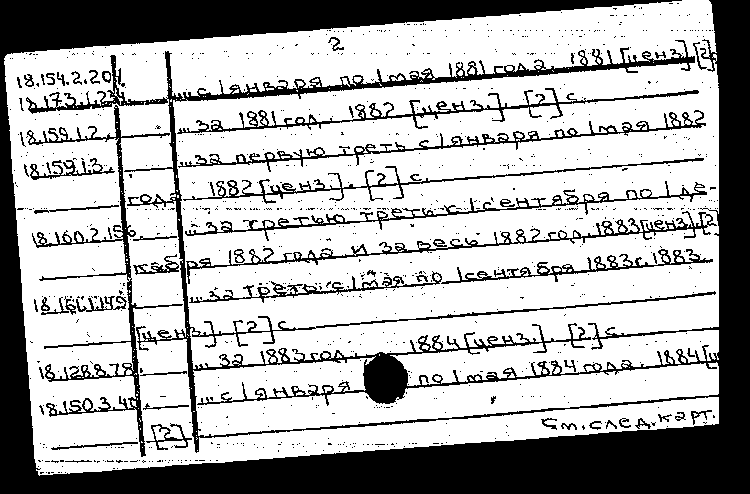 2
18.154.2.201. ...с 1 января по 1 мая 1881 года. 1881 [ценз.] [2]
18.173.1.234. ...за 1881 год. 1882 [ценз.]. [2] с.
18.159.1.2. ...за первую треть с 1 января по 1 мая 1882
18.159.1.3. года. 1882 [ценз.]. [2] с.
18.160.2.156. ...за третью треть с 1 сентября по 1 де-
кабря 1882 года и за весь 1882 год. 1883 [ценз.]. [2]
18.161.1.149. ...за треть с 1 мая по 1 сентября 1883 г. 1883.
[ценз.]. [2] с.
18.128.8.78. ...за 1883 год. 1884 [ценз.]. [2] с.
18.150.3.40. ...с 1 января по 1 мая 1884 года. 1884 [ц
[2]
См. след. карт.